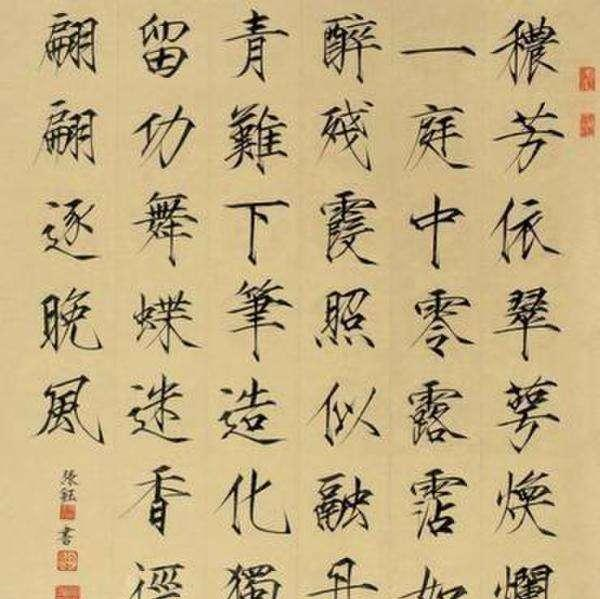 穠芳依翠萼煥爛
一庭中零露霑如
醉殘霞照似融丹
青難下筆造化獨
留功舞蝶迷香徑
翩翩逐晚風
張鈺
書